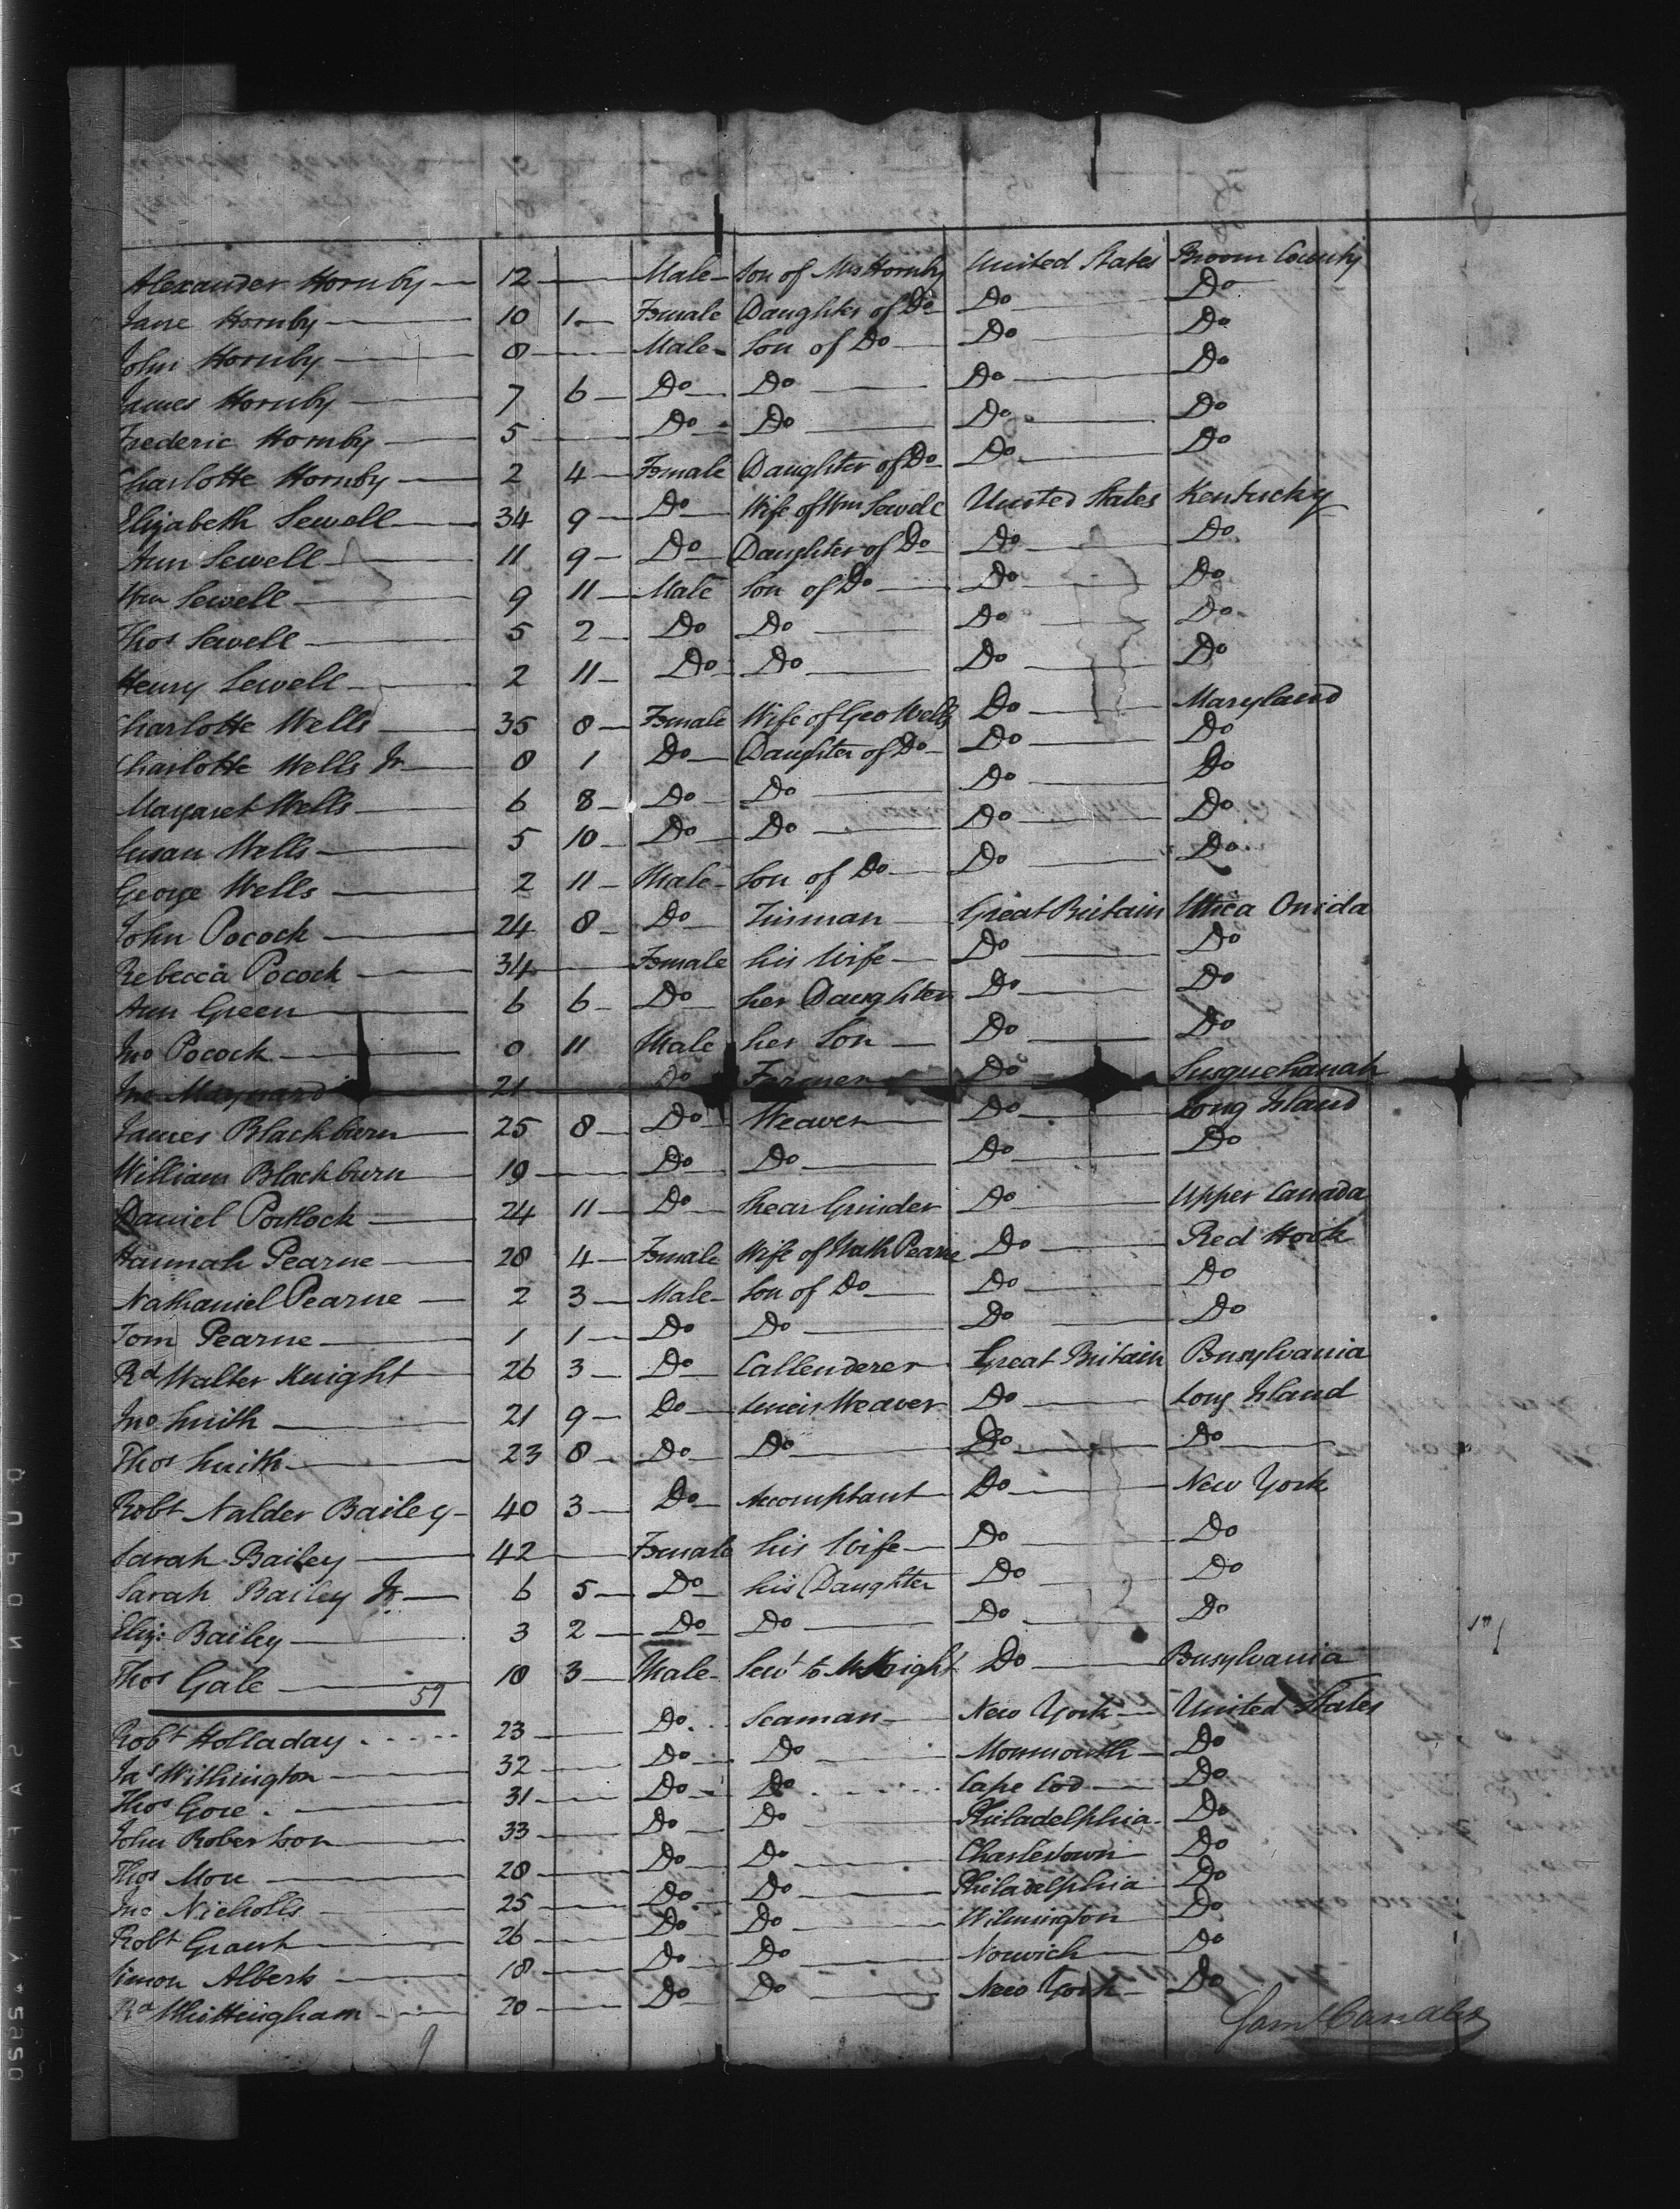 Alexander Hornby 12 Male Son of Mrs Hornby United States Broom County
Jane Hornby 10 1 Female Daughter of Do Do Do
John Hornby 8 Male Son of Do Do Do
James Hornby 7 6 Do Do Do Do
Frederic Hornby 5 Do Do Do Do
Charlotte Hornby 2 4 Female Daughter of Do Do Do
Elizabeth Sewell 34 9 Do Wife of Wm Sewell United States Kentucky
Ann Sewell 11 9 Do Daughter of Do Do Do
Wm Sewell 9 11 Male Son of Do Do Do
Thos Sewell 5 2 Do Do Do Do
Henry Sewell 2 11 Do Do Do Do
Charlotte Wells 35 8 Female Wife of Geo Wells Do Maryland
Charlotte Wells Jr 8 1 Do Daughter of Do Do Do
Margaret Wells 6 8 Do Do Do Do
Susan Wells 5 10 Do Do Do Do
George Wells 2 11 Male Son of Do Do Do
John Pocock 24 8 Do Tinman Great Britain Utica Onida
Rebecca Pocock 34 Female his Wife Do Do
Ann Green 6 6 Do her Daughter Do Do
Jno Pocock 0 11 Male her Son Do Do
Jno Maynard 21 Do Farmer Do Susquehanah
James Blackburn 25 8 Do Weaver Do Long Island
William Blackburn 19 Do Do Do Do
Daniel Portlock 24 11 Do Shear Grinder Do Upper Canada
Hannah Pearne 28 4 Female Wife of Nath Pearne Do Red Hook
Nathaniel Pearne 2 3 Male Son of Do Do Do
Tom Pearne 1 1 Do Do Do Do
Rd Walter Knight 26 3 Do Callenderer Great Britain Bensylvania
Jno Smith 21 9 Do Weaver Do Long Island
Thos Smith 23 8 Do Do Do Do
Robt Nalder Bailey 40 3 Do Accomptant Do New York
Sarah Bailey 42 Female his Wife Do Do
Sarah Bailey Jr 6 5 Do his Daughter Do Do
Eliz: Bailey 3 2 Do Do Do Do
Thos Gale 18 3 Male Servt to Mr Knight Do Bensylvania
59
Robt Holladay 23 Do Seaman New York United States
Jas Withington 32 Do Do Monmouth Do
Thos Gore 31 Do Do Cape Cod Do
John Robertson 33 Do Do Philadelphia Do
Thos Mon 28 Do Do Charlestown Do
Jno Nicholls 25 Do Do Philadelphia Do
Robt Grant 26 Do Do Wilmington Do
Simon Alberts 18 Do Do Norwich Do
Rd Whittingham 20 Do Do New York Do
9